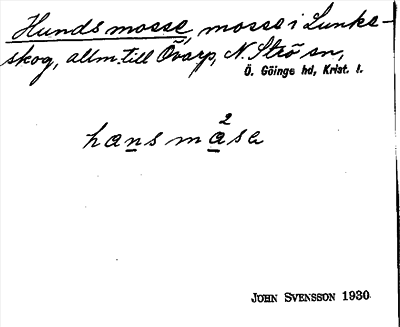 Hundsmosse, mosse i Lunke-
skog, allm. till Övarp, N. Strö sn,
Ö. Göinge hd, Krist. l.
2
hansmåsa
JOHN SVENSSON 1930